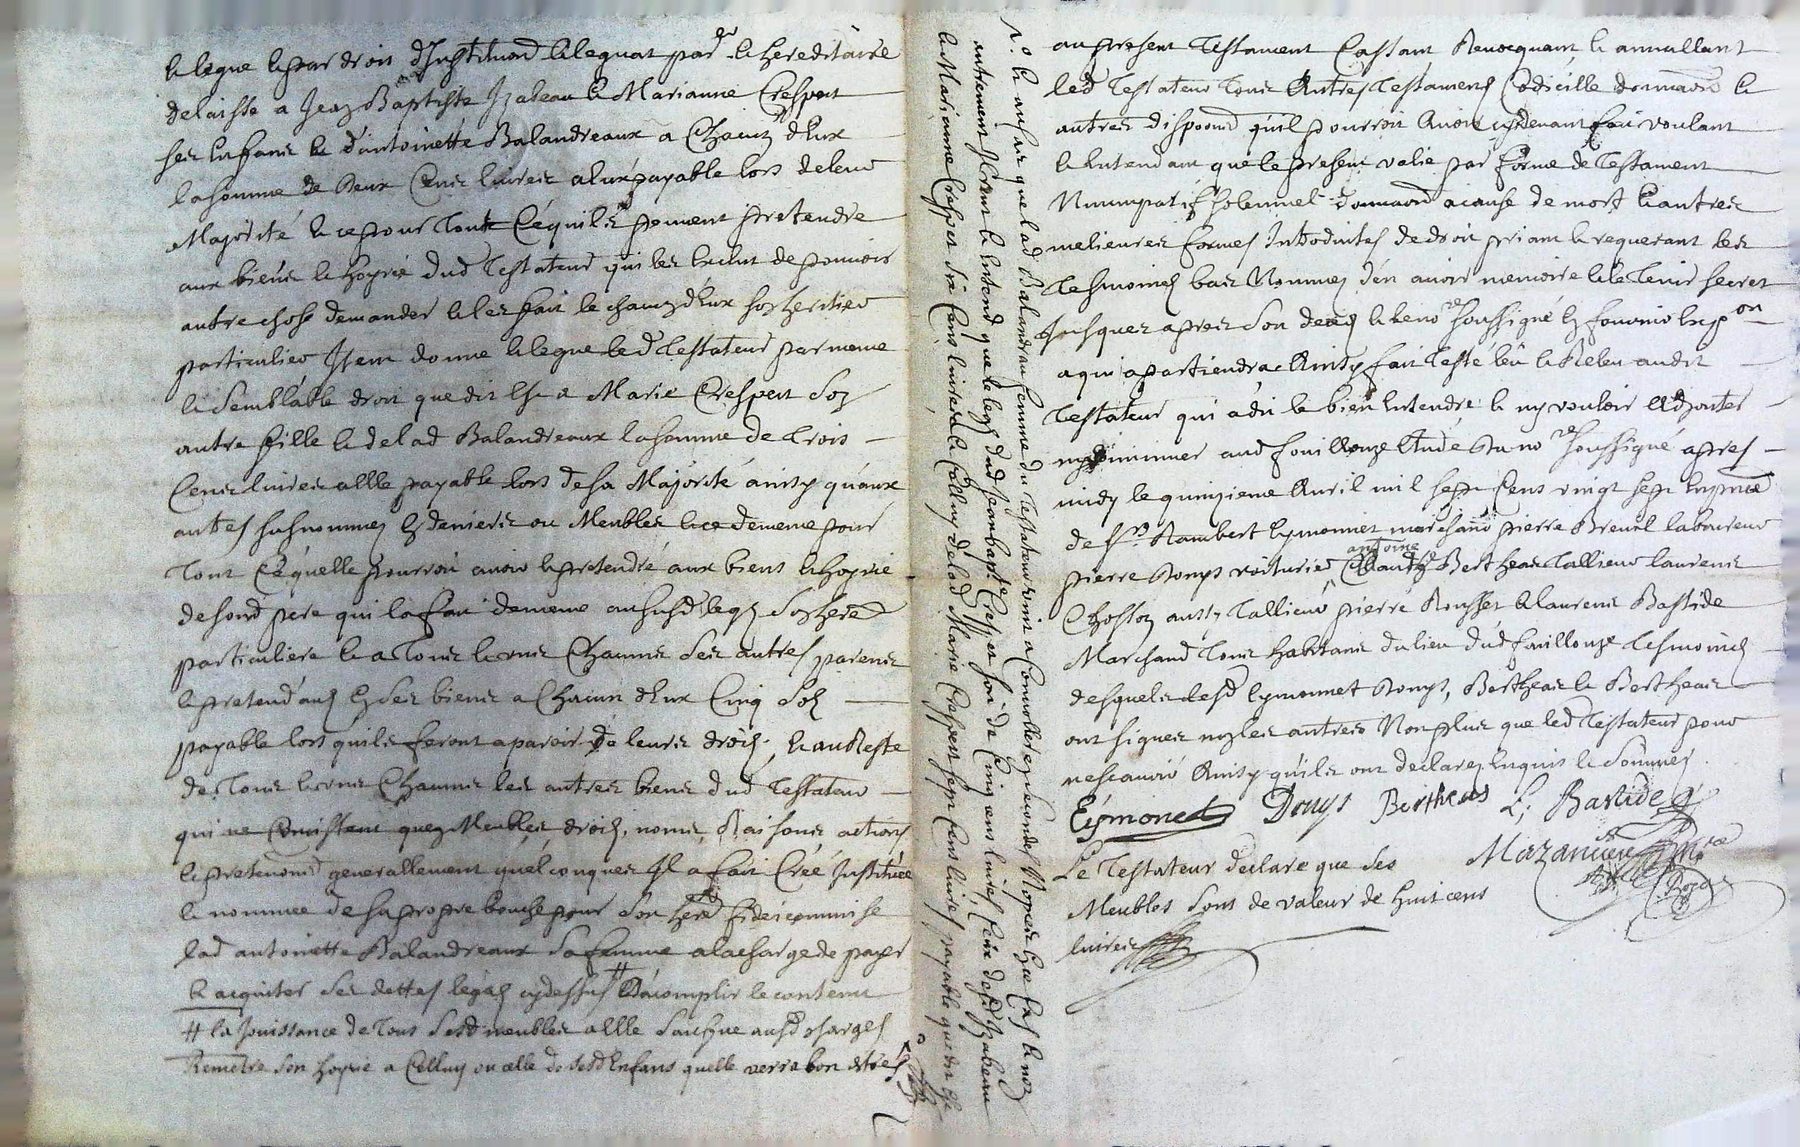 & legue & par droit d'Institu͠on & legat par elle hereditaire
delaisse a Jean Baptiste Izabeau & Marianne Crespet
ses Enfans & d'antoinette Balandreaux a Chacun d'Eux
la somme de deux Cens livres a Eux payable lors de leur
Majorité & ce pour Tout Ce qu'ils peuvent pretendre
aux biens & hoyrie dud Testateur qui les Exclut de pouvoir
autre chose demander & les fait & chacun d'Eux son heritier
particulier Item donne & legue led Testateur par meme
& Semblable droit que dit Est a Marie Crespet Son
autre fille & de lad Balandreaux la somme de Trois
Cens livres a Elle payable lors de sa Majorité ainsy qu'aux
autres susnommes En deniers ou Meubles & ce de meme pour
Tout Ce qu'elle pourroit avoir & pretendre aux biens & hoyrie
de sond pere qui la fait de meme au susd legs son here
particuliere & a Tous & uns Chacuns Ses autres parens
& pretendans En Ses biens a Chacun d'Eux Cinq Sols
payable lors qu'ils feront aparoir de leurs droits, & au Reste
de Tous & uns Chacuns les autres biens dud Testateur
qui ne Consistent qu'en Meubles droits, noms, Raisons actions
& pretensions generallement quelconques Il a fait Créé Institué
& nommée de sa propre bouche pour Son here fideicommise
lad antoinette Balandreaux Sa femme a la charge de payer
& acquiter ses dettes legats cydessus # & acomplir le contenu
# la Jouissance de Tous Sesd meubles a Elle Sauf que ausd charges
Remetre Son hoyrie a Celluy ou celle de Sesd Enfans quelle verra bon estre
& au cas que lad Balandreau femme du Testateur vint a Convoller En secondes Nopces En ce Cas & non
autrement Il veut & Entend que le legs dud Jean bapte Crespet soit de Cinq cens livres Celui desd Izabeau
& Marianne Crespet Six Cens livres & Celluy de lad Marie Crespet Sept Cens livres payable que dit Est
au present Testament Cassant Revocquant & annullant
led Testateur Tous Autres Testamens Codicille donna͠on &
autres dispoon̄s qu'il pourroit Avoir cydevant fait voulant
& Entendant que le present valie par forme de Testament
Nuncupatif Solemnel donna͠on a cause de mort & autres
melieures formes Introduites de droit priant & requerant les
Tesmoins bas Nommes d'en avoir memoire & le Tenir secret
Jusques apres Son deces & le no͠re soussigné En fournir Exp.on
a qui apartiendra Ainsy fait Testé leu & Releu audit
Testateur qui a dit le bien Entendre & ny vouloir Adjouter
ny diminuer aud fouillouze Etude du no͠re soussigné apres
midy le quinzieme Avril mil sept Cens vingt sept En p͠nce
de Sr Rambert Eymonnet marchand pierre Breuil laboureur
pierre Donys voiturier antoine Bertheas Tallieur laurens
Chosson aussy Tallieur pierre Rousset & laurens Bastide
Marchand Tous habitans du lieu dud fouillouze Tesmoins
desquels lesd Eymonnet Donys, Bertheas & Bertheas
ont signes ny les autres Non plus que led Testateur pour
ne scavoir Ainsy qu'ils ont declares Enquis & Sommes.
Eymonet Donys Bertheas L, Bastide
Le Testateur declare que ses
Meubles Sont de valeur de huit cens
livres
Mazancieu